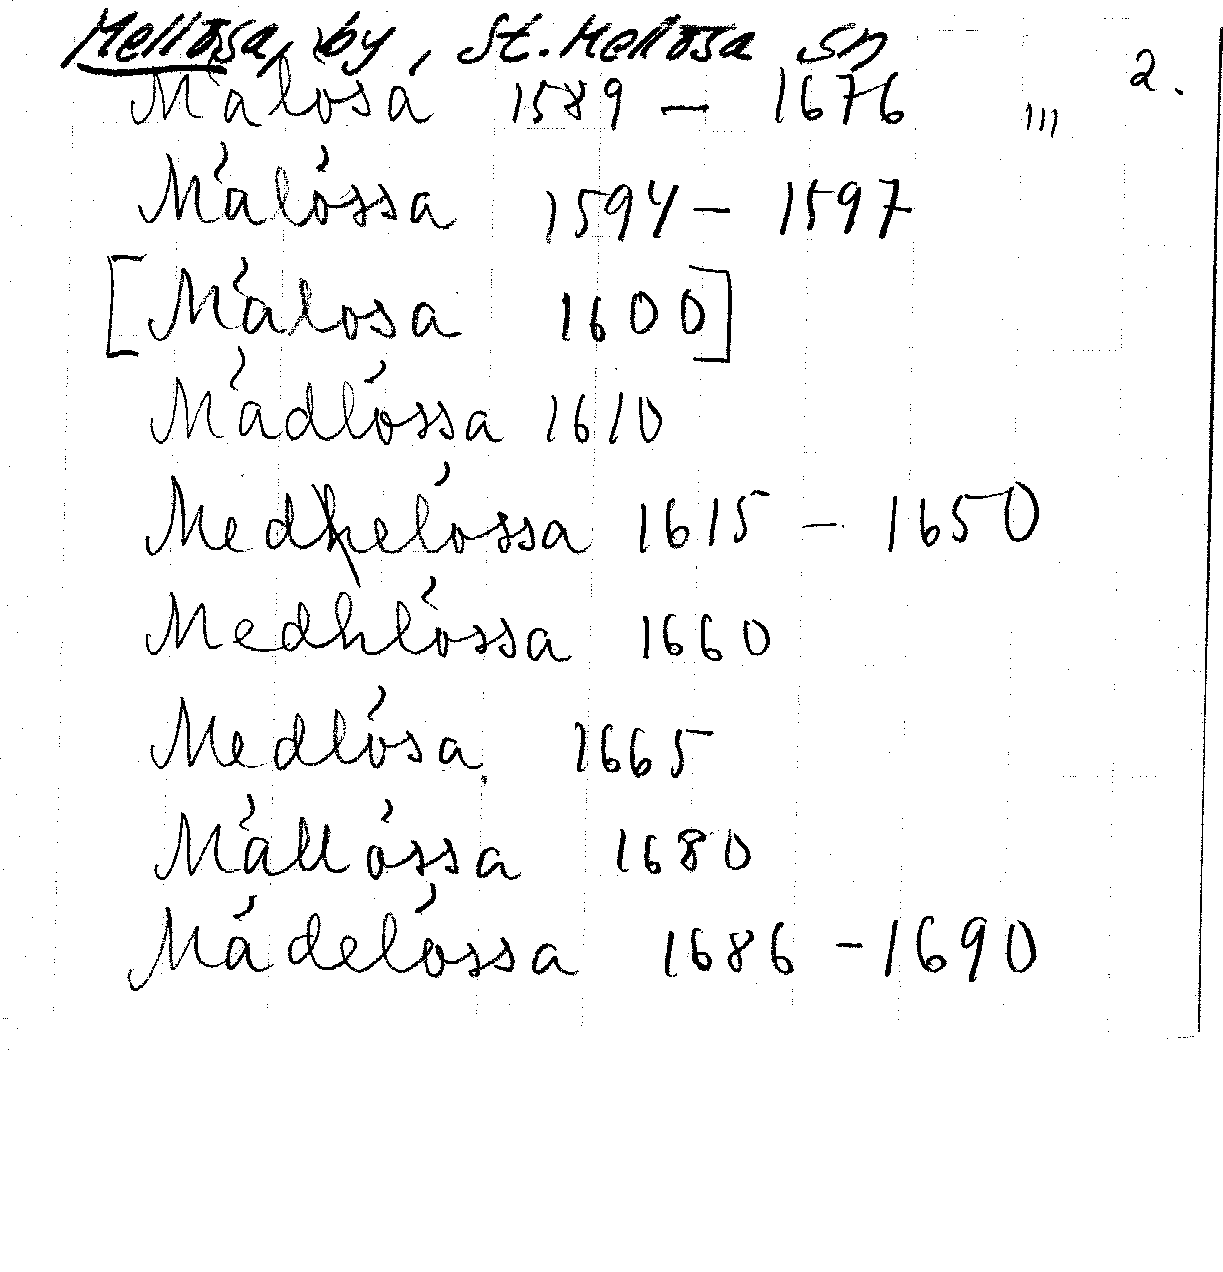 Mellösa, by, St. Mellösa sn
2.
Målösa 1589 — 1676 ///
Målóssa 1594 — 1597
[Målosa 1600]
Mådlóssa 1610
Medhelóssa 1615 — 1650
Medhlóssa 1660
Medlósa 1665
Mállóssa 1680
Mádelóssa 1686 — 1690